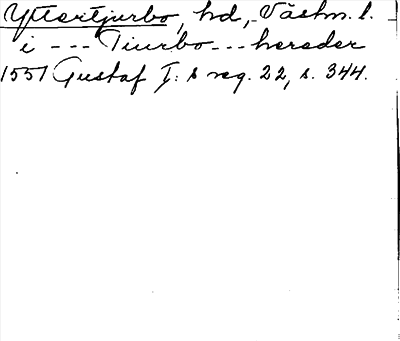 Yttertjurbo, hd, Västm. l.
i --- Tiurbo --- hereder
1551 Gustaf I:s reg. 22, s. 344.